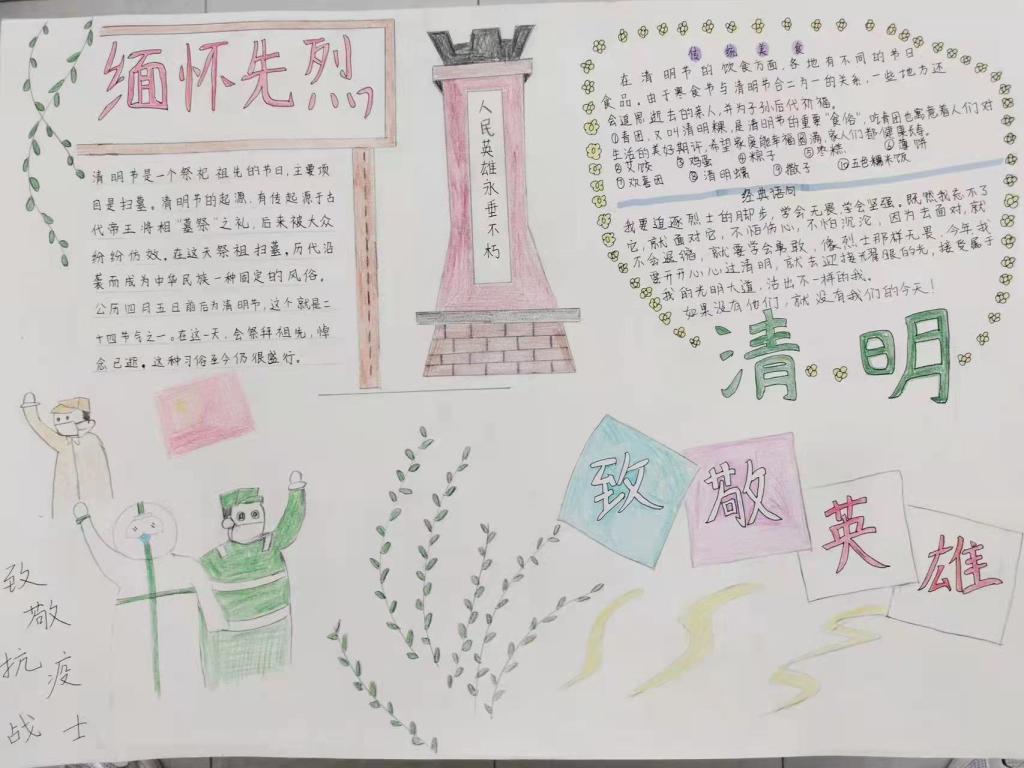 缅怀先烈
清明节是一个祭祀祖先的节日,主要项
目是扫墓。清明节的起源,有传起源于古
代帝王将相“墓祭”之礼,后来被大众
纷纷仿效。在这天祭祖扫墓。历代沿
袭而成为中华民族一种固定的风俗。
公历四月五日前后为清明节,这个就是二
十四节气之一。在这一天,会祭拜祖先,悼
念已逝。这种习俗至今仍很盛行。
人民英雄永垂不朽
传统美食
在清明节的饮食方面,各地有不同的节日
食品。由于寒食节与清明节合二为一的关系,一些地方还
会追思逝去的亲人,并为子孙后代祈福。
①青团,又叫清明粿,是清明节的重要“食俗”,吃青团也寓意着人们对
生活的美好期许,希望家庭能幸福圆满,家人们都健康长寿。
②艾饺 ③鸡蛋 ④粽子 ⑤枣糕 ⑥薄饼
⑦欢喜团 ⑧清明螺 ⑨馓子 ⑩五色糯米饭
经典语句
我要追逐烈士的脚步,学会无畏,学会坚强。既然我忘不了
它,就面对它,不怕伤心,不怕沉沦,因为去面对,就
不会退缩,就要学会勇敢,像烈士那样无畏,今年我
要开开心心过清明,就去迎接无春眼的光,接受属于
我的光明大道,活出不一样的我。
如果没有他们,就没有我们的今天!
清明
致敬英雄
致敬
抗疫
战士